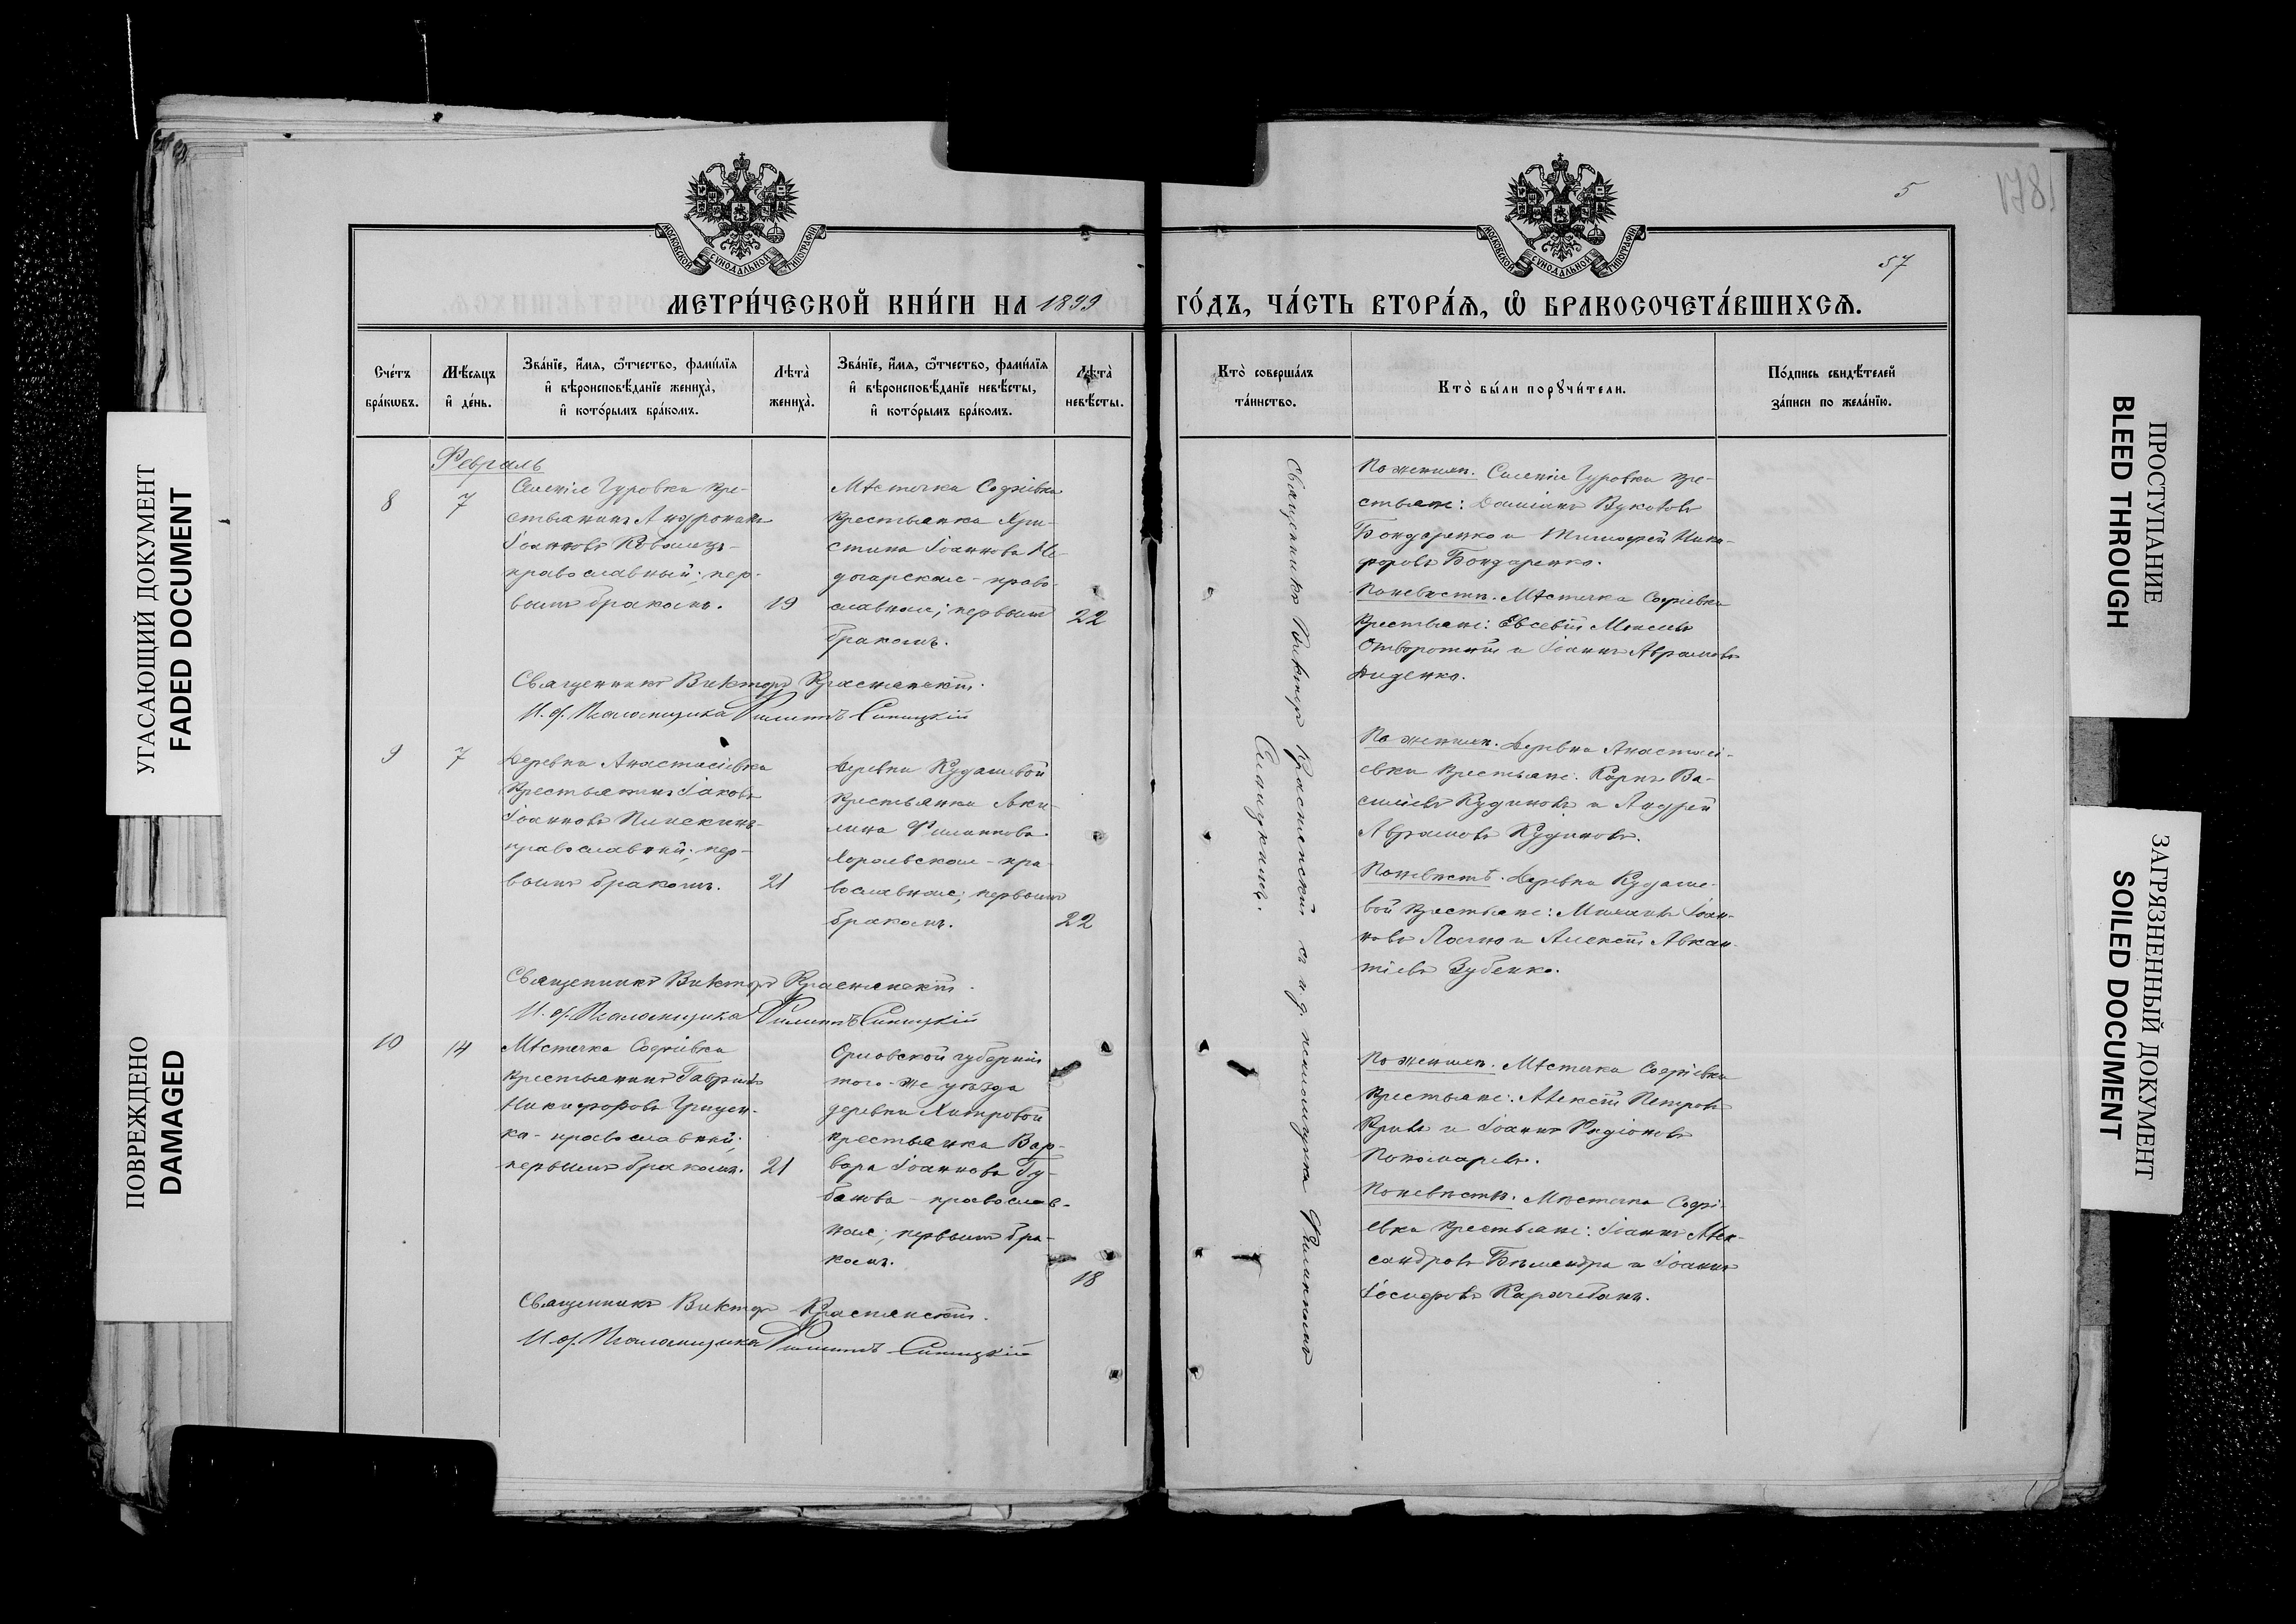 УГАСАЮЩИЙ ДОКУМЕНТ
FADED DOCUMENT
ПОВРЕЖДЕНО
DAMAGED
МОСКОВСКОЙ СѴНОДАЛЬНОЙ ТИПОГРАФІИ
МЕТРИ́ЧЕСКОЙ КНИ́ГИ НА 1899
Сче́тъ бра́кωвъ.
Мѣ́сяцъ и҆ де́нь.
Зва́нїе, и҆́мя, ѻ҆́тчество, фами́лїя
и҆ вѣроисповѣ́данїе жениха̀,
и҆ кото́рымъ бра́комъ.
Лѣ́та̀ жениха̀.
Зва́нїе, и҆́мя, ѻ҆́тчество, фами́лїя
и҆ вѣроисповѣ́данїе невѣ́сты,
и҆ кото́рымъ бра́комъ.
Лѣ́та̀ невѣ́сты.
Февраль
8
7
Селенія Гуровки кре-
стьянинъ Андроникъ
Іоанновъ Коваленъ-
православный; пер-
вымъ бракомъ.
19
Мѣстечка Софіевки
крестьянка Хри-
стина Іоаннова Не-
догарская - право-
славная; первымъ
бракомъ.
22
Священникъ Викторъ Краснянскій.
И. д. Псаломщика Филиппъ Синицкій
9
7
Деревни Анастасіевки
крестьянинъ Іаковъ
Іоанновъ
православный; пер-
вымъ бракомъ.
21
Деревни Кудашевой
крестьянка Аки-
лина Филиппова
Хорольская - пра-
вославная; первымъ
бракомъ.
22
Священникъ Викторъ Краснянскій.
И. д. Псаломщика Филиппъ Синицкій
10
14
Мѣстечка Софіевки
крестьянинъ Гавріилъ
Никифоровъ Грицен-
ко - православный;
первымъ бракомъ.
21
Орловской губерніи
того-же уѣзда
деревни Хитровой
крестьянка Вар-
вара Іоаннова Гу-
банова - православ-
ная; первымъ бра-
комъ.
18
Священникъ Викторъ Краснянскій.
И. д. Псаломщика Филиппъ Синицкій
5
57
МОСКОВСКОЙ СѴНОДАЛЬНОЙ ТИПОГРАФІИ
ГО́ДЪ, ЧА́СТЬ ВТОРА́Я, Ѽ БРАКОСОЧЕТА́ВШИХСЯ.
Кто̀ соверша́лъ
та́инство.
Кто̀ бы́ли порꙋчи́тели.
По́дпись свидѣ́телей
за́писи по жела́нїю.
Священникъ Викторъ Краснянскій съ и. д. псаломщика Филиппомъ
Синицкимъ.
По женихѣ. Селенія Гуровки кре-
стьяне: Даміанъ
Бондаренко и Тимофей Ники-
форовъ Бондаренко.
По невѣстѣ. Мѣстечка Софіевки
крестьяне: Евсевій
и Іоаннъ Авраамовъ
Диденко.
По женихѣ. Деревни Анастасі-
евки крестьяне: Карпъ Ва-
сильевъ Кудиновъ и Андрей
Авраамовъ Кудиновъ.
По невѣстѣ. Деревни Кудаше-
вой крестьяне: Михаилъ Іоан-
новъ и Алексій Авксен-
тіевъ Зубенко.
По женихѣ. Мѣстечка Софіевки
крестьяне: Алексій Петровъ
и Іоаннъ Родіоновъ
Пономаревъ.
По невѣстѣ. Мѣстечка Софі-
евки крестьяне: Іоаннъ Алек-
сандровъ и Іоаннъ
Іосифовъ
ПРОСТУПАНИЕ
BLED THROUGH
ЗАГРЯЗНЕННЫЙ ДОКУМЕНТ
SOILED DOCUMENT